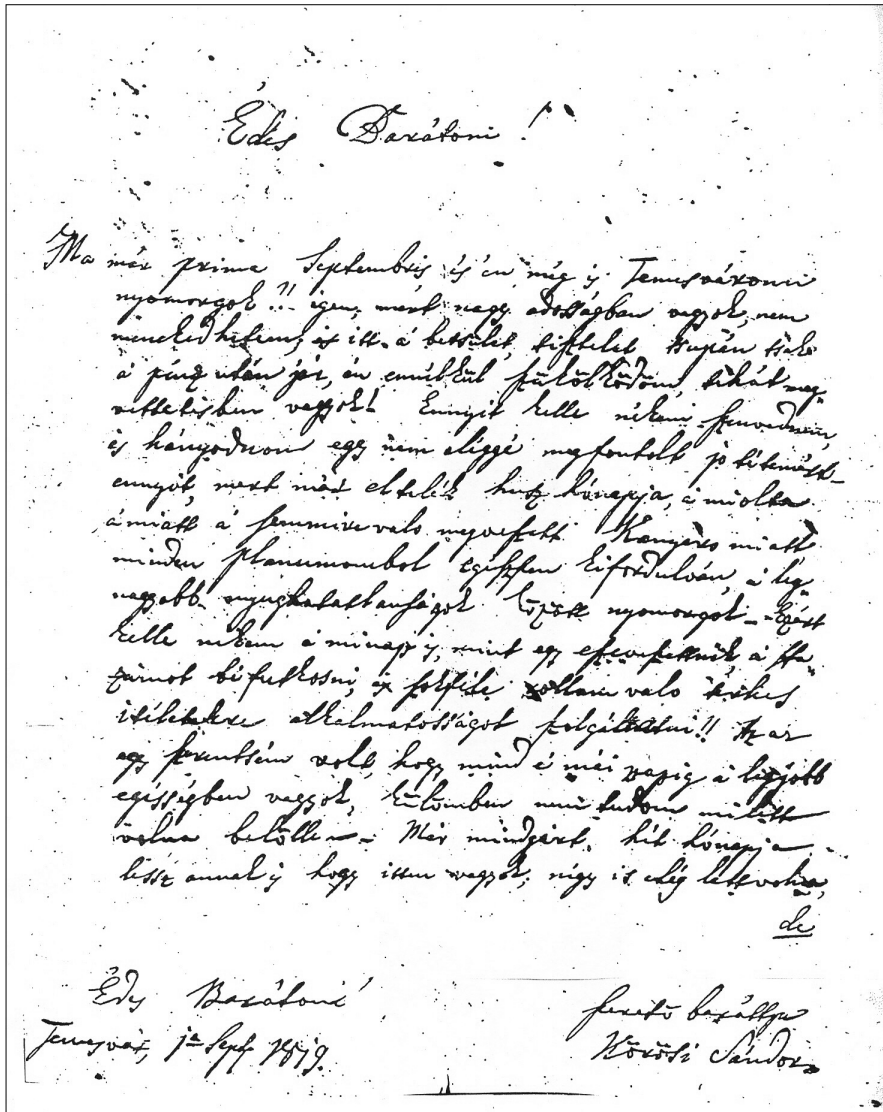 Édes Barátom!
Ma már prima Septembris és én még is Temesváronn
nyomorgok!! igen, mert nagy adosságban vagyok, nem
menekedhetem, és itt a betsület, tisztelet tsupán tsak
á pénz után jár, én e nélkül szükölködöm, tehát meg
vettetésben vagyok! Ennyit kelle nékem szenvednem,
és hányodnom egy nem eléggé megfontolt jo
ennyit, mert már eltelék husz hónapja, á miolta
ámiatt á semmire valo megveszett Kangero miatt
minden planumombol egészszen kifordulván, á leg
nagyobb nyughatatlanságok között nyomorgok – Ezért
kelle nékem á minap is, mint egy eszeveszettnek, á Ha
zámot béfutkosni, és sokféle rollam valo
itéletekre alkalmatosságot szolgáltatni!! Az az
egy szerentsém volt, hogy mind é mái napig á legjobb
egésségben vagyok, külömben nem tudom mi lett
volna belöllem – Már mindgyárt hét hónapja
lész annak is hogy itten vagyok, négy is elég lett volna,
de
Édes Barátom
szerető baráttya
Temesvár, 1a Sept. 1819.
Körösi Sándor